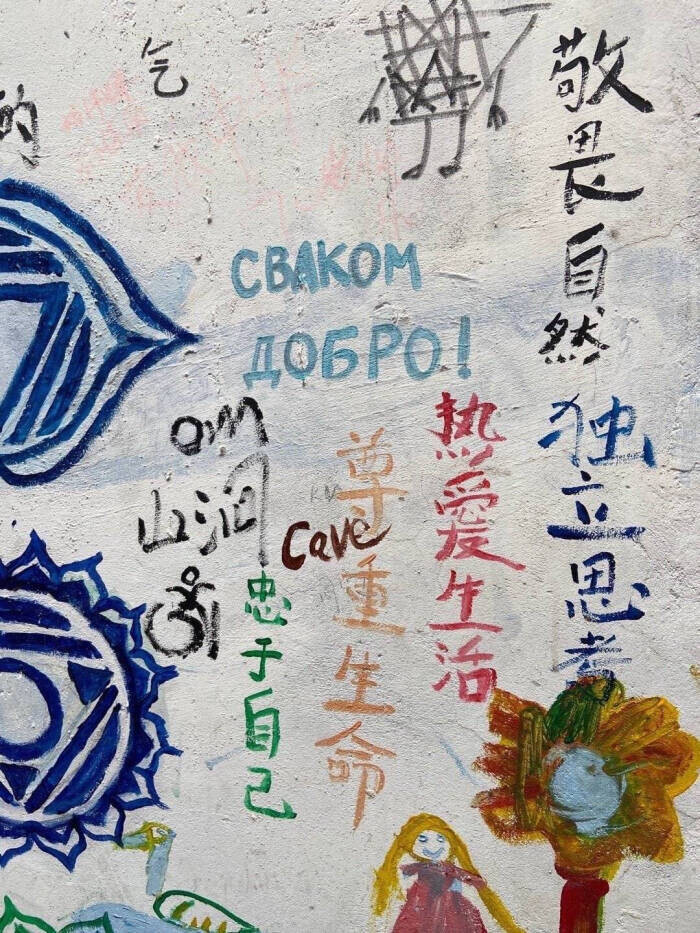 气
的
敬畏自然
СВАКОМ
ДОБРО!
热爱生活
独立思考
尊重生命
OM
山洞
Cave
忠于自己